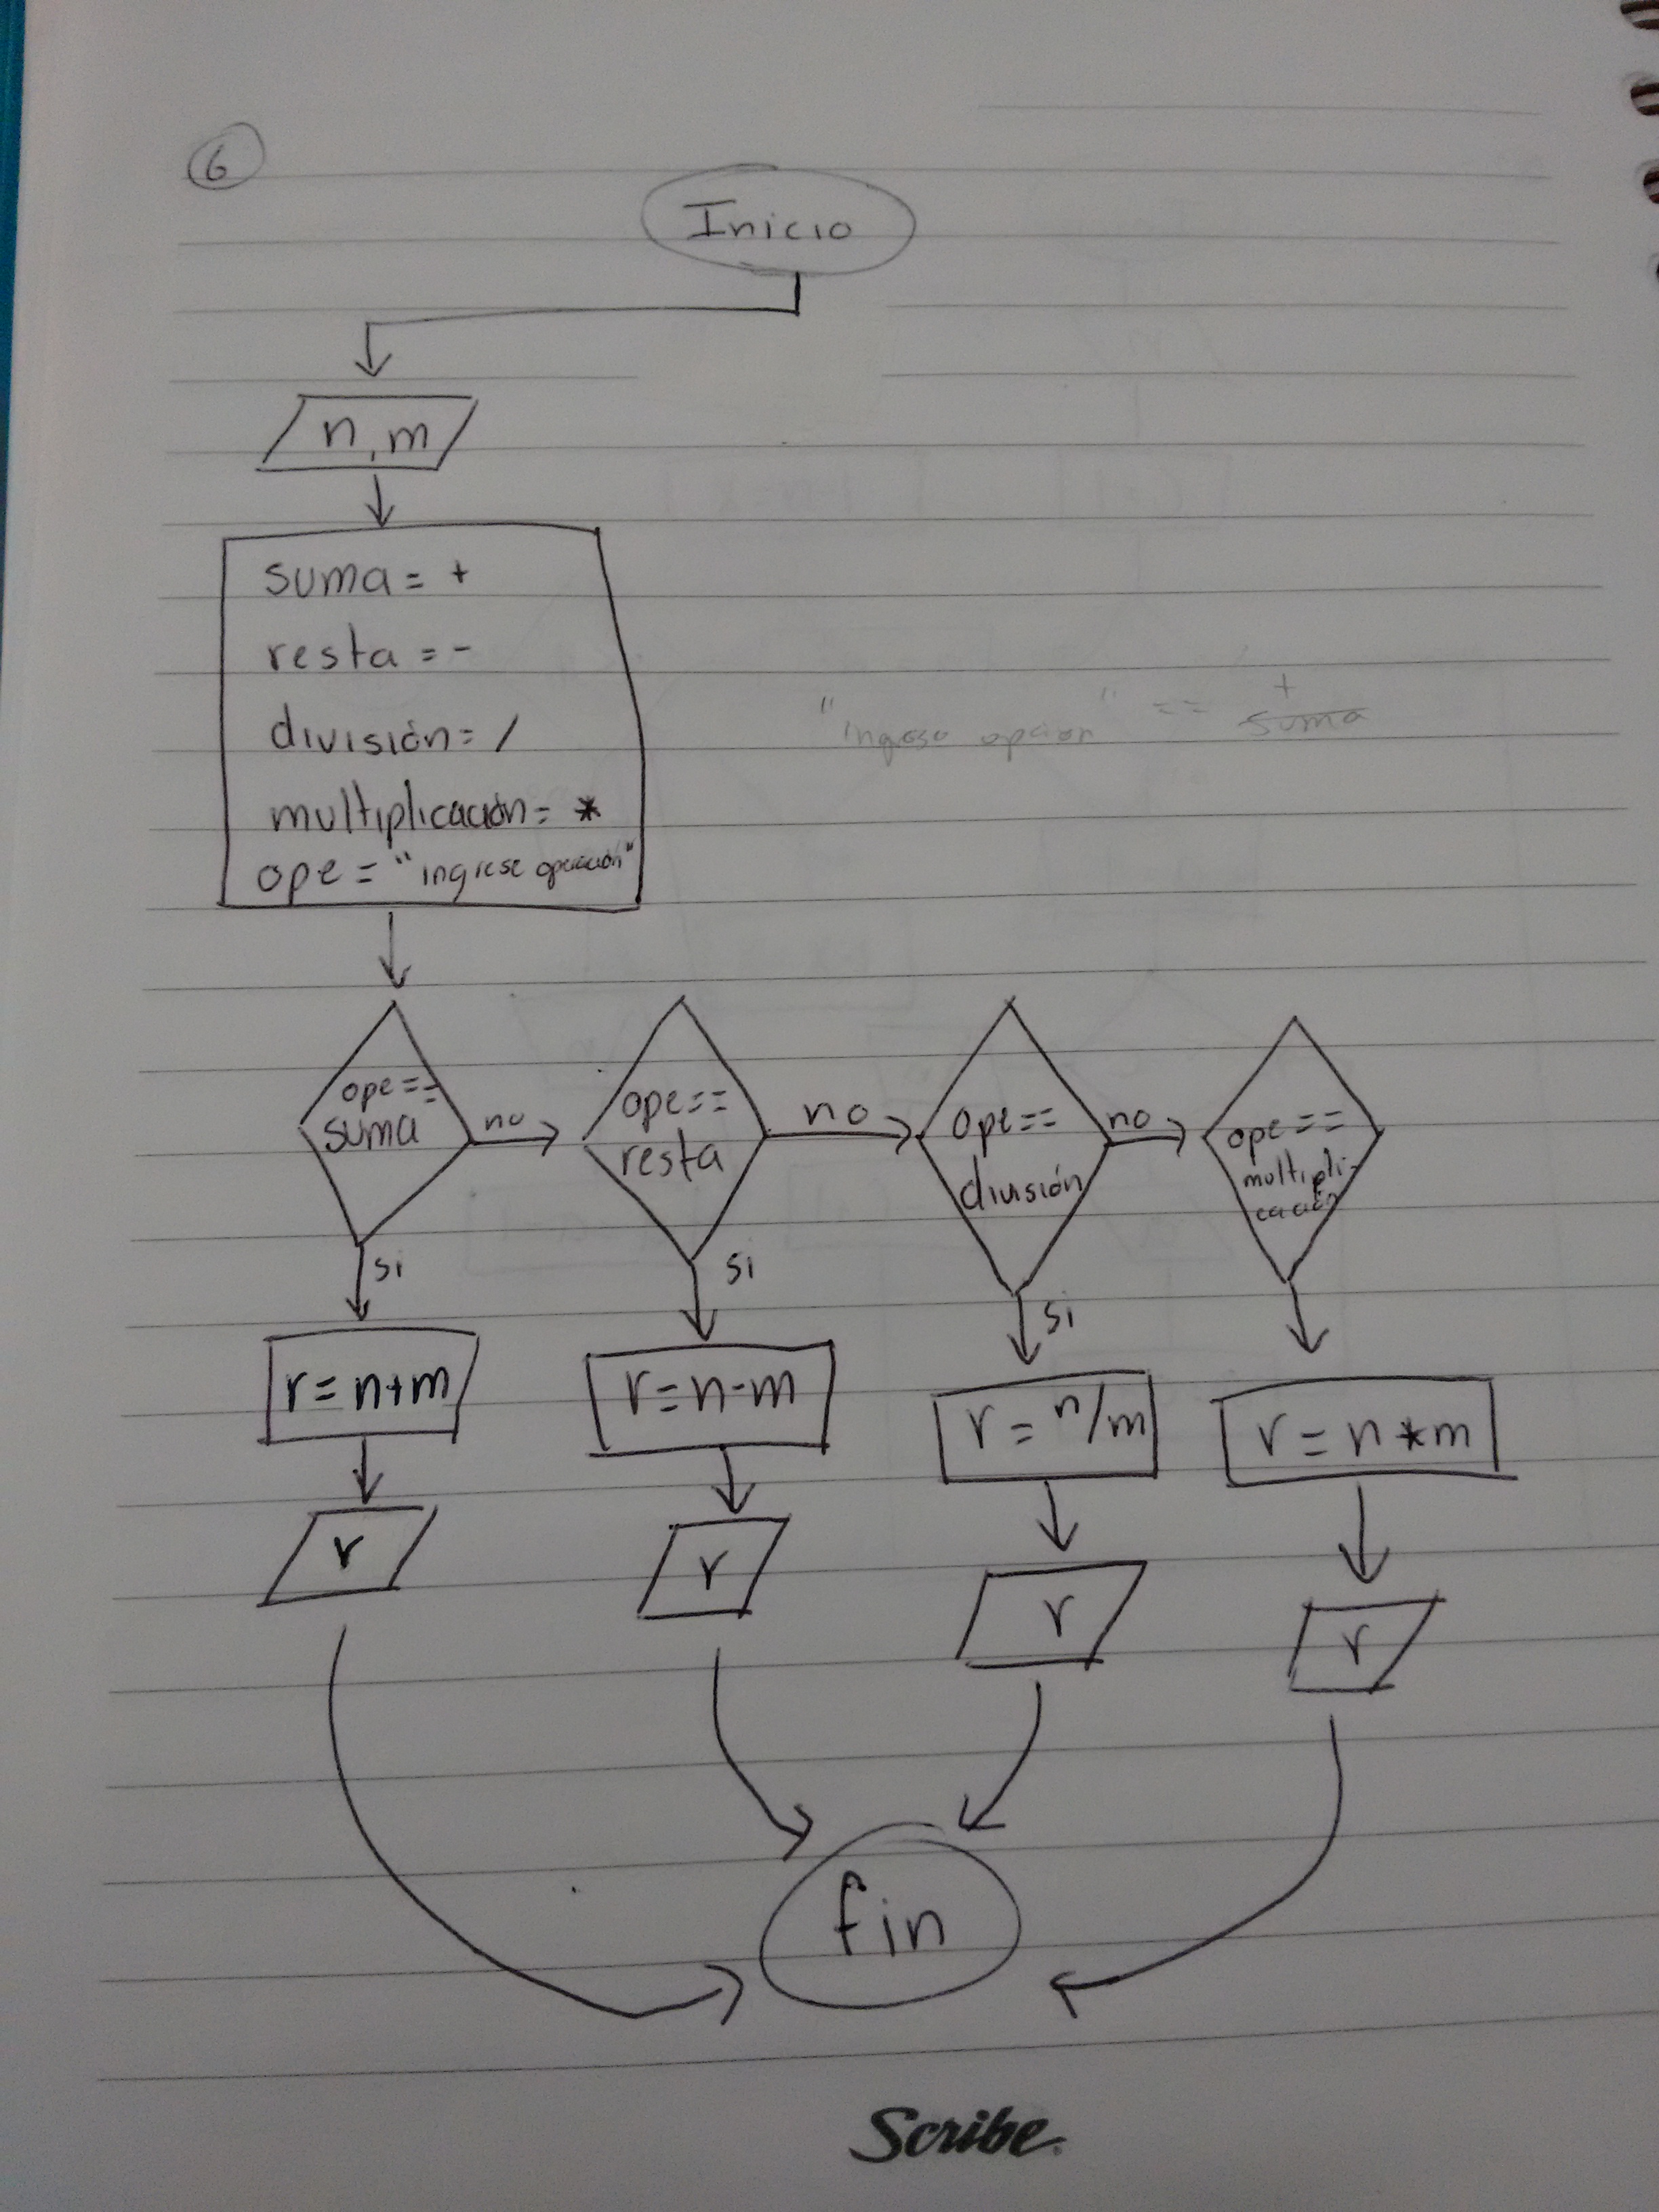 6
Inicio
n, m
suma = +
resta = -
división = /
multiplicación = *
ope = "ingrese operación"
"ingrese opcion" == suma
+
ope == suma
no
ope == resta
no
ope == división
no
ope == multipli-
cación
si
si
si
r = n+m
r = n-m
r = n/m
r = n*m
r
r
r
r
fin
Scribe